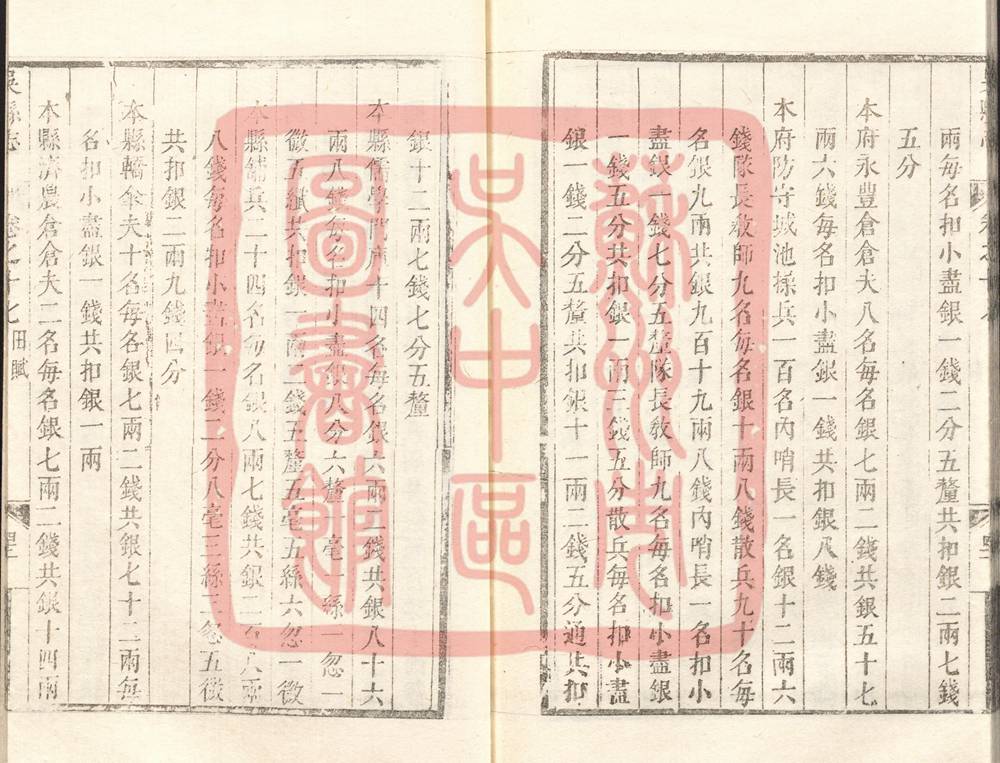 兩每名扣小盡銀一錢二分五釐共扣銀二兩七錢
五分
本府永豐倉倉夫八名每名銀七兩二錢共銀五十七
兩六錢每名扣小盡銀一錢共扣銀八錢
本府防守城池操兵一百名內哨長一名銀十二兩六
錢隊長敎師九名每名銀十兩八錢散兵九十名每
名銀九兩共銀九百十九兩八錢內哨長一名扣小
盡銀一錢七分五釐隊長敎師九名每名扣小盡銀
一錢五分共扣銀一兩三錢五分散兵每名扣小盡
銀一錢二分五釐共扣銀十一兩二錢五分通共扣
銀十二兩七錢七分五釐
本縣儒學門庫十四名每名銀六兩二錢共銀八十六
兩八錢每名扣小盡銀八分六釐一毫一絲一忽一
微五纖共扣銀一兩二錢五釐五毫五絲六忽一微
本縣舖兵二十四名每名銀八兩七錢共銀二百八兩
八錢每名扣小盡銀一錢二分八毫三絲三忽五微
共扣銀二兩九錢四分
本縣轎傘夫十名每名銀七兩二錢共銀七十二兩每
名扣小盡銀一錢共扣銀一兩
本縣濟農倉倉夫二名每名銀七兩二錢共銀十四兩
吳縣志
卷之十七 田賦
蘇州市
吴中區
圖書館